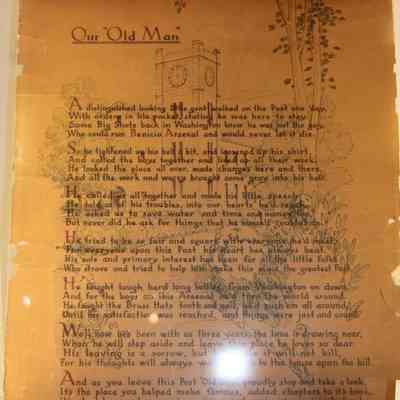 Our "Old Man"
A distinguished looking gent walked on the Post one day,
With orders in his pocket stating he was here to stay.
Some Big Shots back in Washington knew he was just the guy,
Who could run Benicia Arsenal and would never let it die.
So he tightened up his belt a bit, and loosened up his shirt
And called the boys together and lined up all their work.
He looked the place all over, made changes here and there,
And all the work and worry brought some gray into his hair.
He called us all together and made his little speech,
He told us of his troubles, into our hearts he'd reach
He asked us to save water and time and money too,
But never did he ask for things that he himself
He tried to be so fair and square with everyone he'd meet
For everyone upon this Post his heart has always beat.
His sole and primary interest has been for all the little folks
Who strove and tried to help him make this place the greatest Post
He fought tough hard long battles from Washington on down,
And for the boys in this Arsenal he'd the world around.
He fought the Brass Hats forth and back, and all around;
Until his satisfaction was reached, and things were just and sound.
Well now he's been with us three years, the time is drawing near,
When he will step aside and leave this place he loves so dear.
His leaving is a sorrow, but it will not kill,
For his thoughts will always to the house upon the hill.
And as you leave this Post "Old Man" proudly stop and take a look,
It's the place you helped make famous, added chapters to its book,